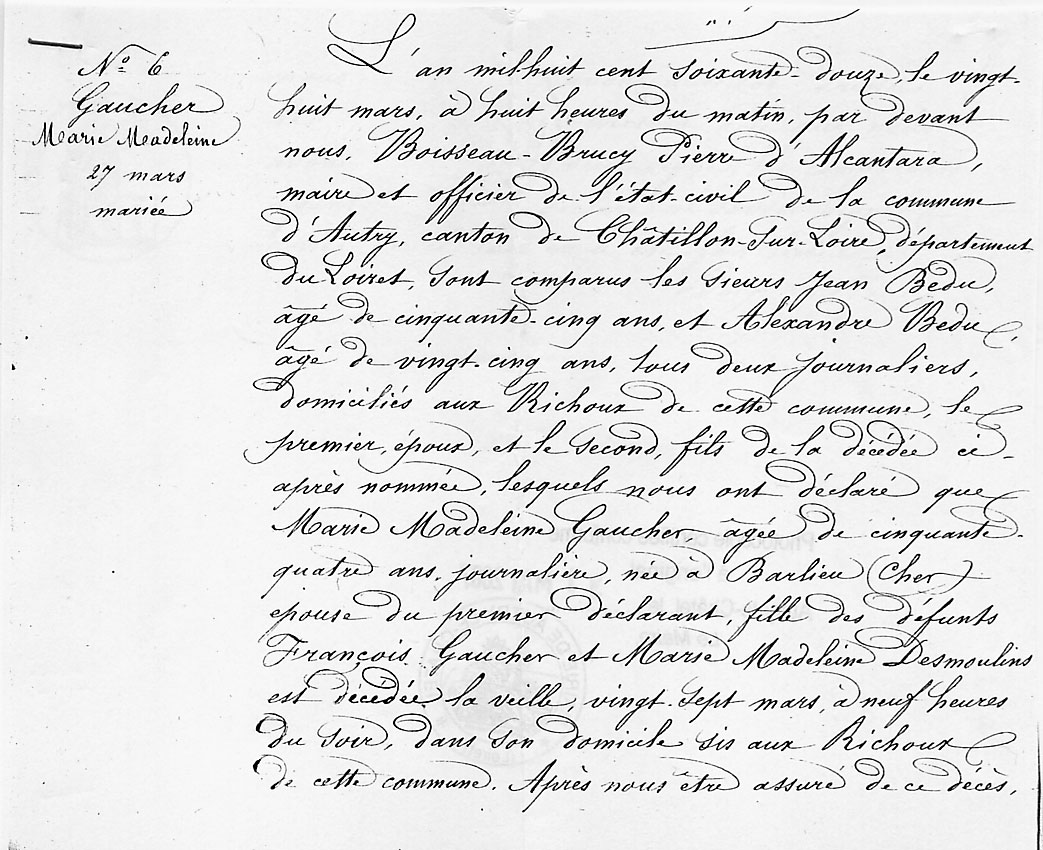 N° 6
Gaucher
Marie Madeleine
27 mars
mariée
L'an mil-huit cent soixante-douze, le vingt-
huit mars, à huit heures du matin, par devant
nous, Boisseau-Brucy Pierre d'Alcantara,
maire et officier de l'état-civil de la commune
d'Autry, canton de Châtillon-sur-Loire, département
du Loiret, sont comparus les sieurs Jean Bedu,
âgé de cinquante-cinq ans, et Alexandre Bedu,
âgé de vingt-cinq ans, tous deux journaliers,
domiciliés aux Richoux de cette commune, le
premier, époux, et le second, fils de la décédée ci-
après nommée, lesquels nous ont déclaré que
Marie Madeleine Gaucher, âgée de cinquante-
quatre ans, journalière, née à Barlieu (Cher)
épouse du premier déclarant, fille des défunts
François Gaucher et Marie Madeleine Desmoulins
est décédée la veille, vingt-sept mars, à neuf heures
du soir, dans son domicile sis aux Richoux
de cette commune. Après nous être assuré de ce décès,